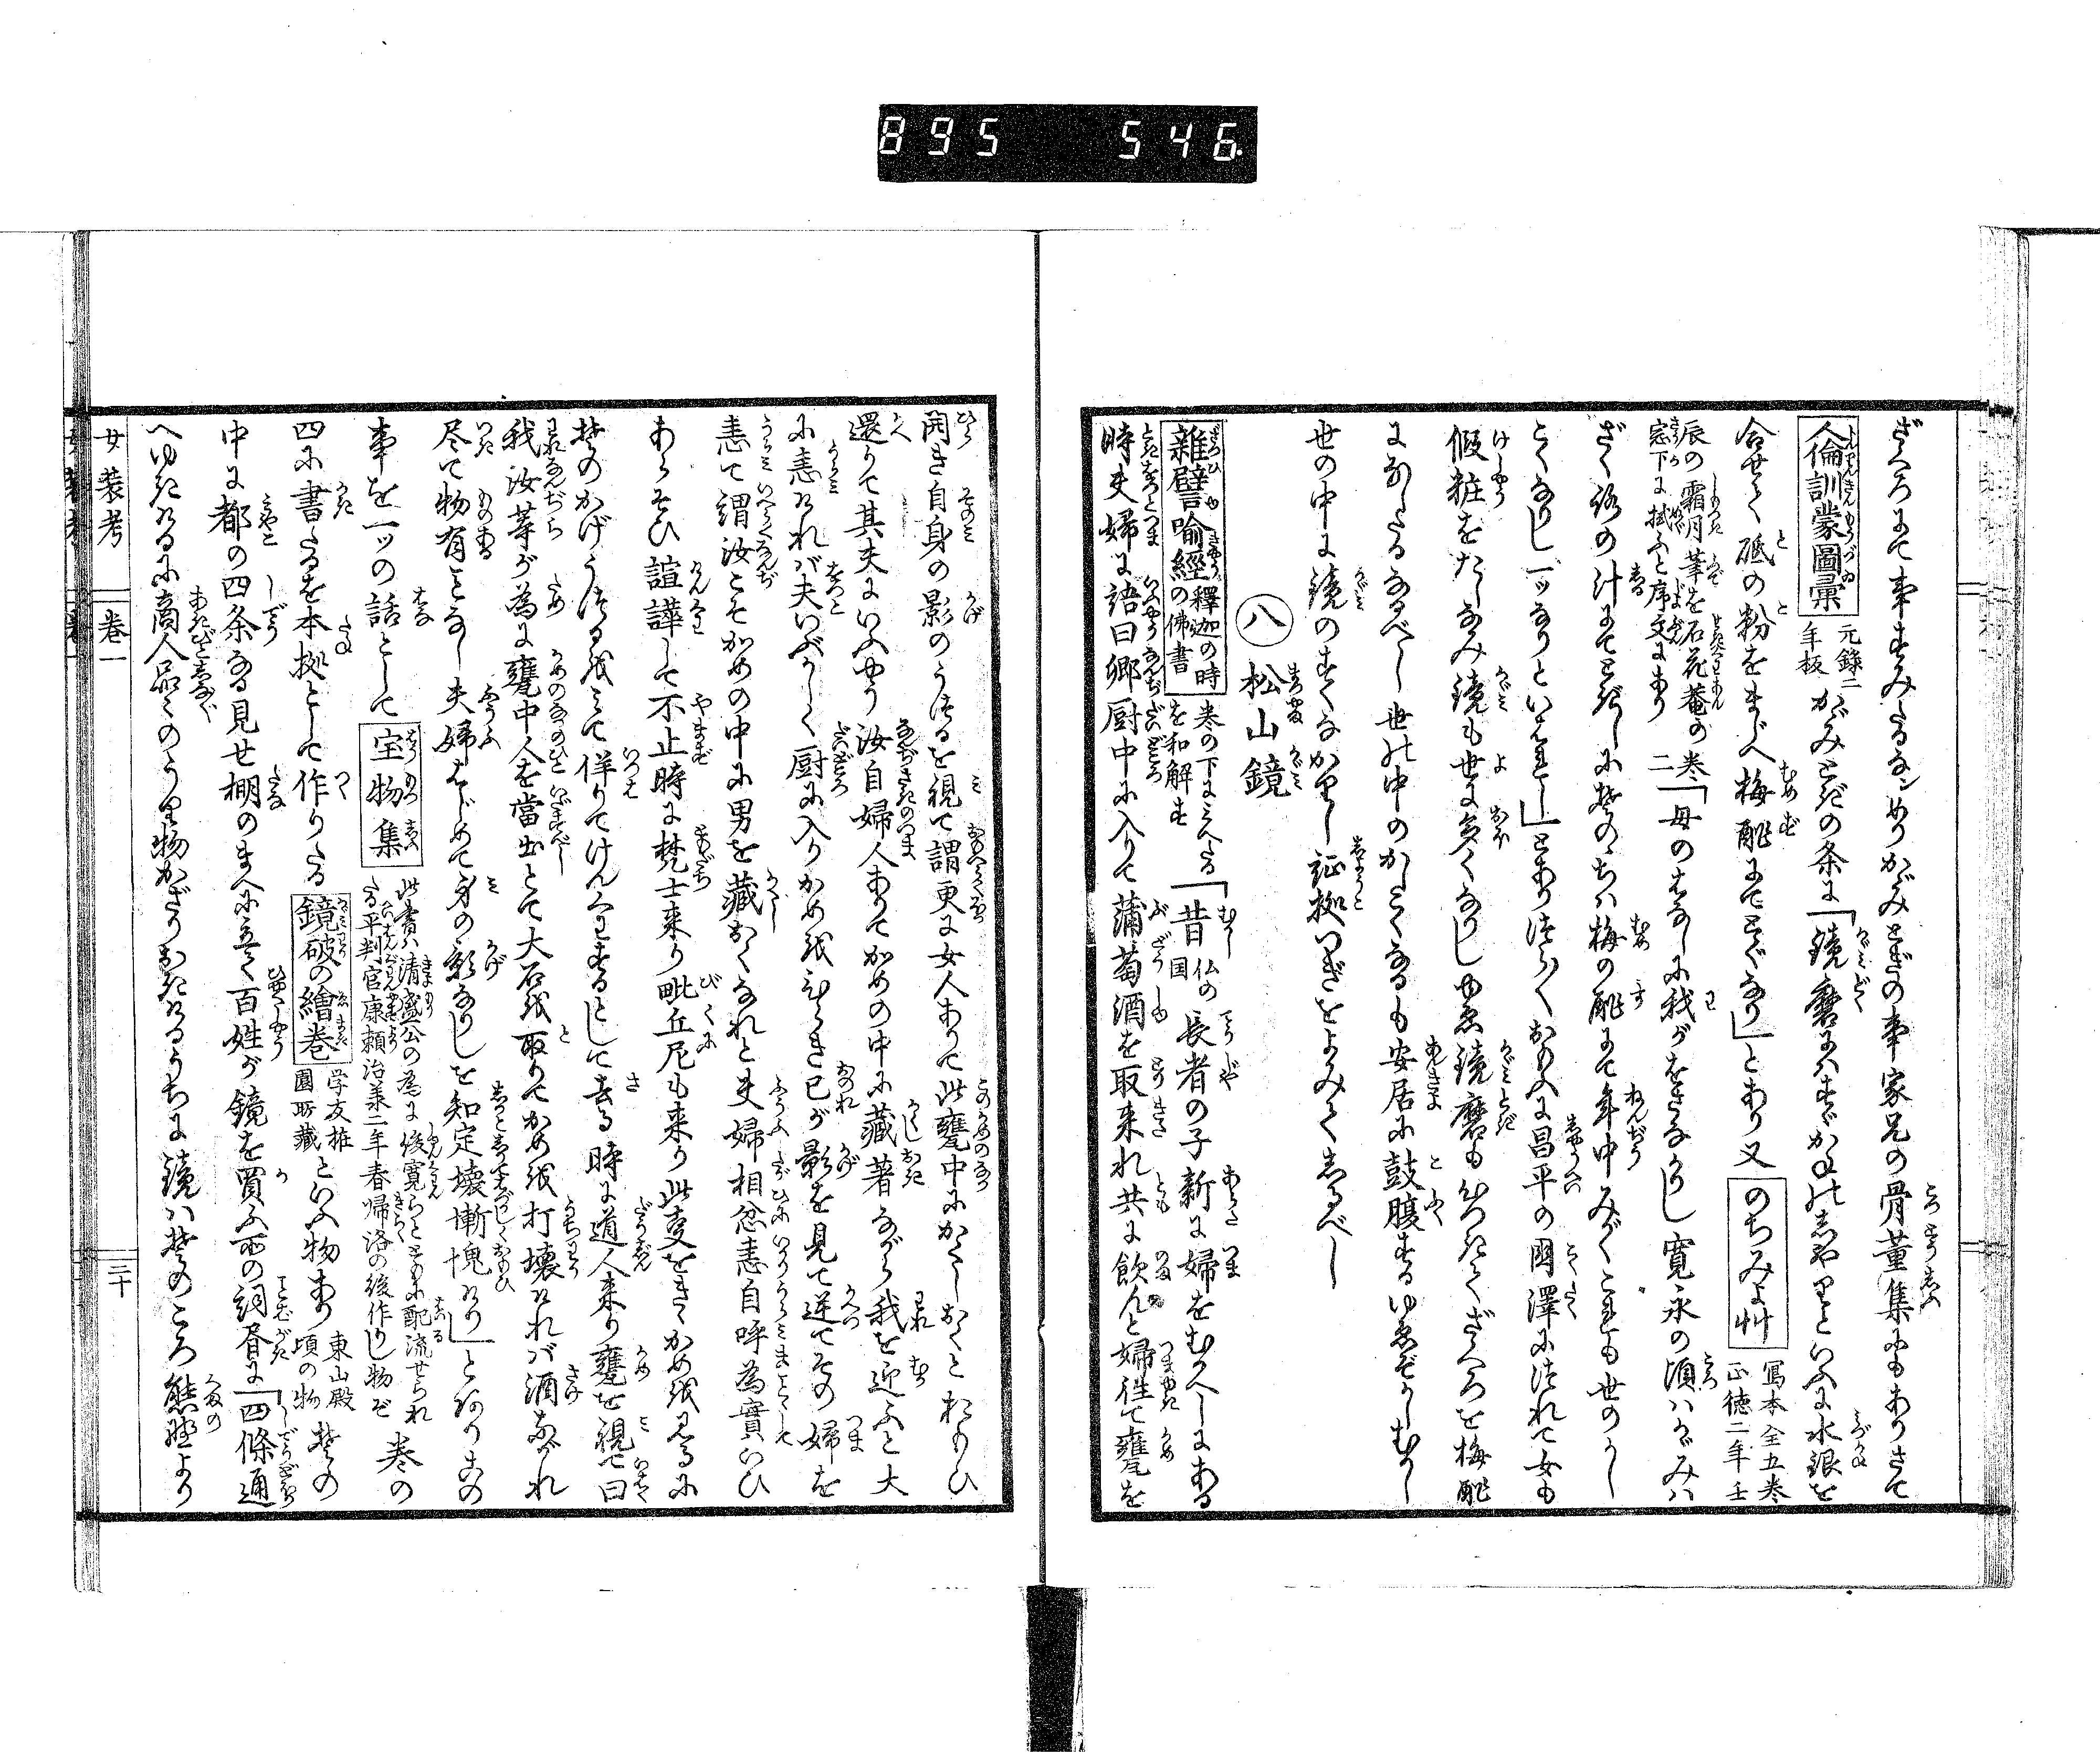 895 546
ざくろにて事すみたるなンめりかゞみとぎの事家兄の骨董集にもありさて
人倫訓蒙圖彙 元錄三年板 かゞみとぎの条に「鏡磨にハすゞかねのしやりといふに水銀を
合せて砥の粉をまじへ梅酢にてとぐなり」とあり又 のちみよ艸 寫本全五巻正徳二年壬
辰の霜月筆を石花菴の窓下に拭ふと序文にあり 巻二「母のはなしに我がをさなかりし寛永の頃ハかゞみハ
ざくろの汁にてとぎしに其のゝちハ梅の酢にて年中みがくこれも世のかし
こくなりし一ッなりといはれし」とありつら〱おもふに昌平の國澤にほれて女も
假粧をたしなみ鏡も世に多くなりしゆゑ鏡磨もひつきてざくろを梅酢
になしたるなるべし世の中のかしこくなるも安居に鼓腹するゆゑぞかしむかし
世の中に鏡のすくなかりし証拠つぎをよみてしるべし
八 松山鏡
雜譬喩經 釋迦の時の佛書 巻の下にみえたるを和解す 「昔仏国の長者の子新に婦をむかへしにある
時夫婦に語曰卿厨中に入りて蒲萄酒を取来れ共に飲んと婦徃て甕を
開き自身の影のうつるを視て謂更に女人ありて此甕中にかくしおくとおもひ
還りて其夫にいふやう汝自婦人ありてかめの中に藏著ながら我を迎ふと大
に恚けれバ夫いぶかしく厨に入りかめをひらき已が影を見て逆てその婦を
恚て謂汝こそかめの中に男を藏おくなれと夫婦相忿恚自呼為實いひ
あらそひ諠譁して不止時に梵士来り毗丘尼も来り此㕝をきゝかめを見るに
其のかげうつるをミて佯りてけんくわするとして去る時に道人来り甕を視て曰
我汝等が為に甕中人を當出とて大石を取りてかめを打壊けれバ酒ながれ
尽て物有ことなし夫婦はじめて身の影なりしを知定壊慚愧けり」とありこの
事を一ッの話として 宝物集 此書ハ清盛公の為に俊寛らとともに配流せられたる平判官康頼治承二年春帰洛の後作りし物ぞ 巻の
四に書たるを本拠として作りたる 鏡破の繪巻 学友椎園所藏 といふ物あり 東山殿頃の物 其の
中に都の四条なる見せ棚のまへに立て百姓が鏡を買ふ所の詞昏に「四條通
へゆきけるに商人品〻のうり物かざりおきけるうちに鏡ハ其のころ熊野より
女装考 巻一 三十